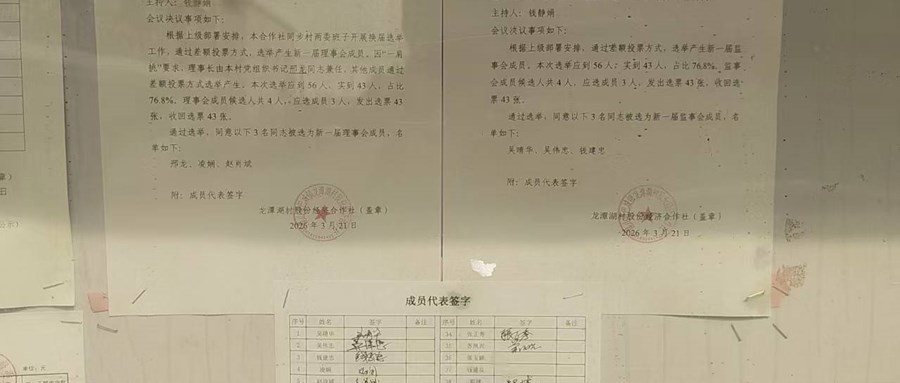 主持人：钱静娟
会议决议事项如下：
根据上级部署安排，本合作社同步村两委班子开展换届选举
工作，通过差额投票方式，选举产生新一届理事会成员。因“一肩
挑”要求，理事长由本村党组织书记邢龙同志兼任，其他成员通过
差额投票方式选举产生。本次选举应到 56 人，实到 43 人，占比
76.8%。理事会成员候选人共 4 人，应选成员 3 人，发出选票 43
张，收回选票 43 张。
通过选举，同意以下 3 名同志被选为新一届理事会成员，名
单如下：
邢龙、凌娴、赵肖斌
附：成员代表签字
龙潭湖村股份经济合作社（盖章）
2026 年 3 月 21 日
主持人：钱静娟
会议决议事项如下：
根据上级部署安排，通过差额投票方式，选举产生新一届监
事会成员。本次选举应到 56 人，实到 43 人，占比 76.8%。监事
会成员候选人共 4 人，应选成员 3 人，发出选票 43 张，收回选
票 43 张。
通过选举，同意以下 3 名同志被选为新一届监事会成员，名
单如下：
吴晴华、吴伟忠、钱建忠
附：成员代表签字
龙潭湖村股份经济合作社（盖章）
2026 年 3 月 21 日
成员代表签字
序号 姓名 签字 备注 序号 姓名 签字 备注
1 吴晴华
2 吴伟忠
3 钱建忠
4 凌娴
5 赵肖斌
单位：元